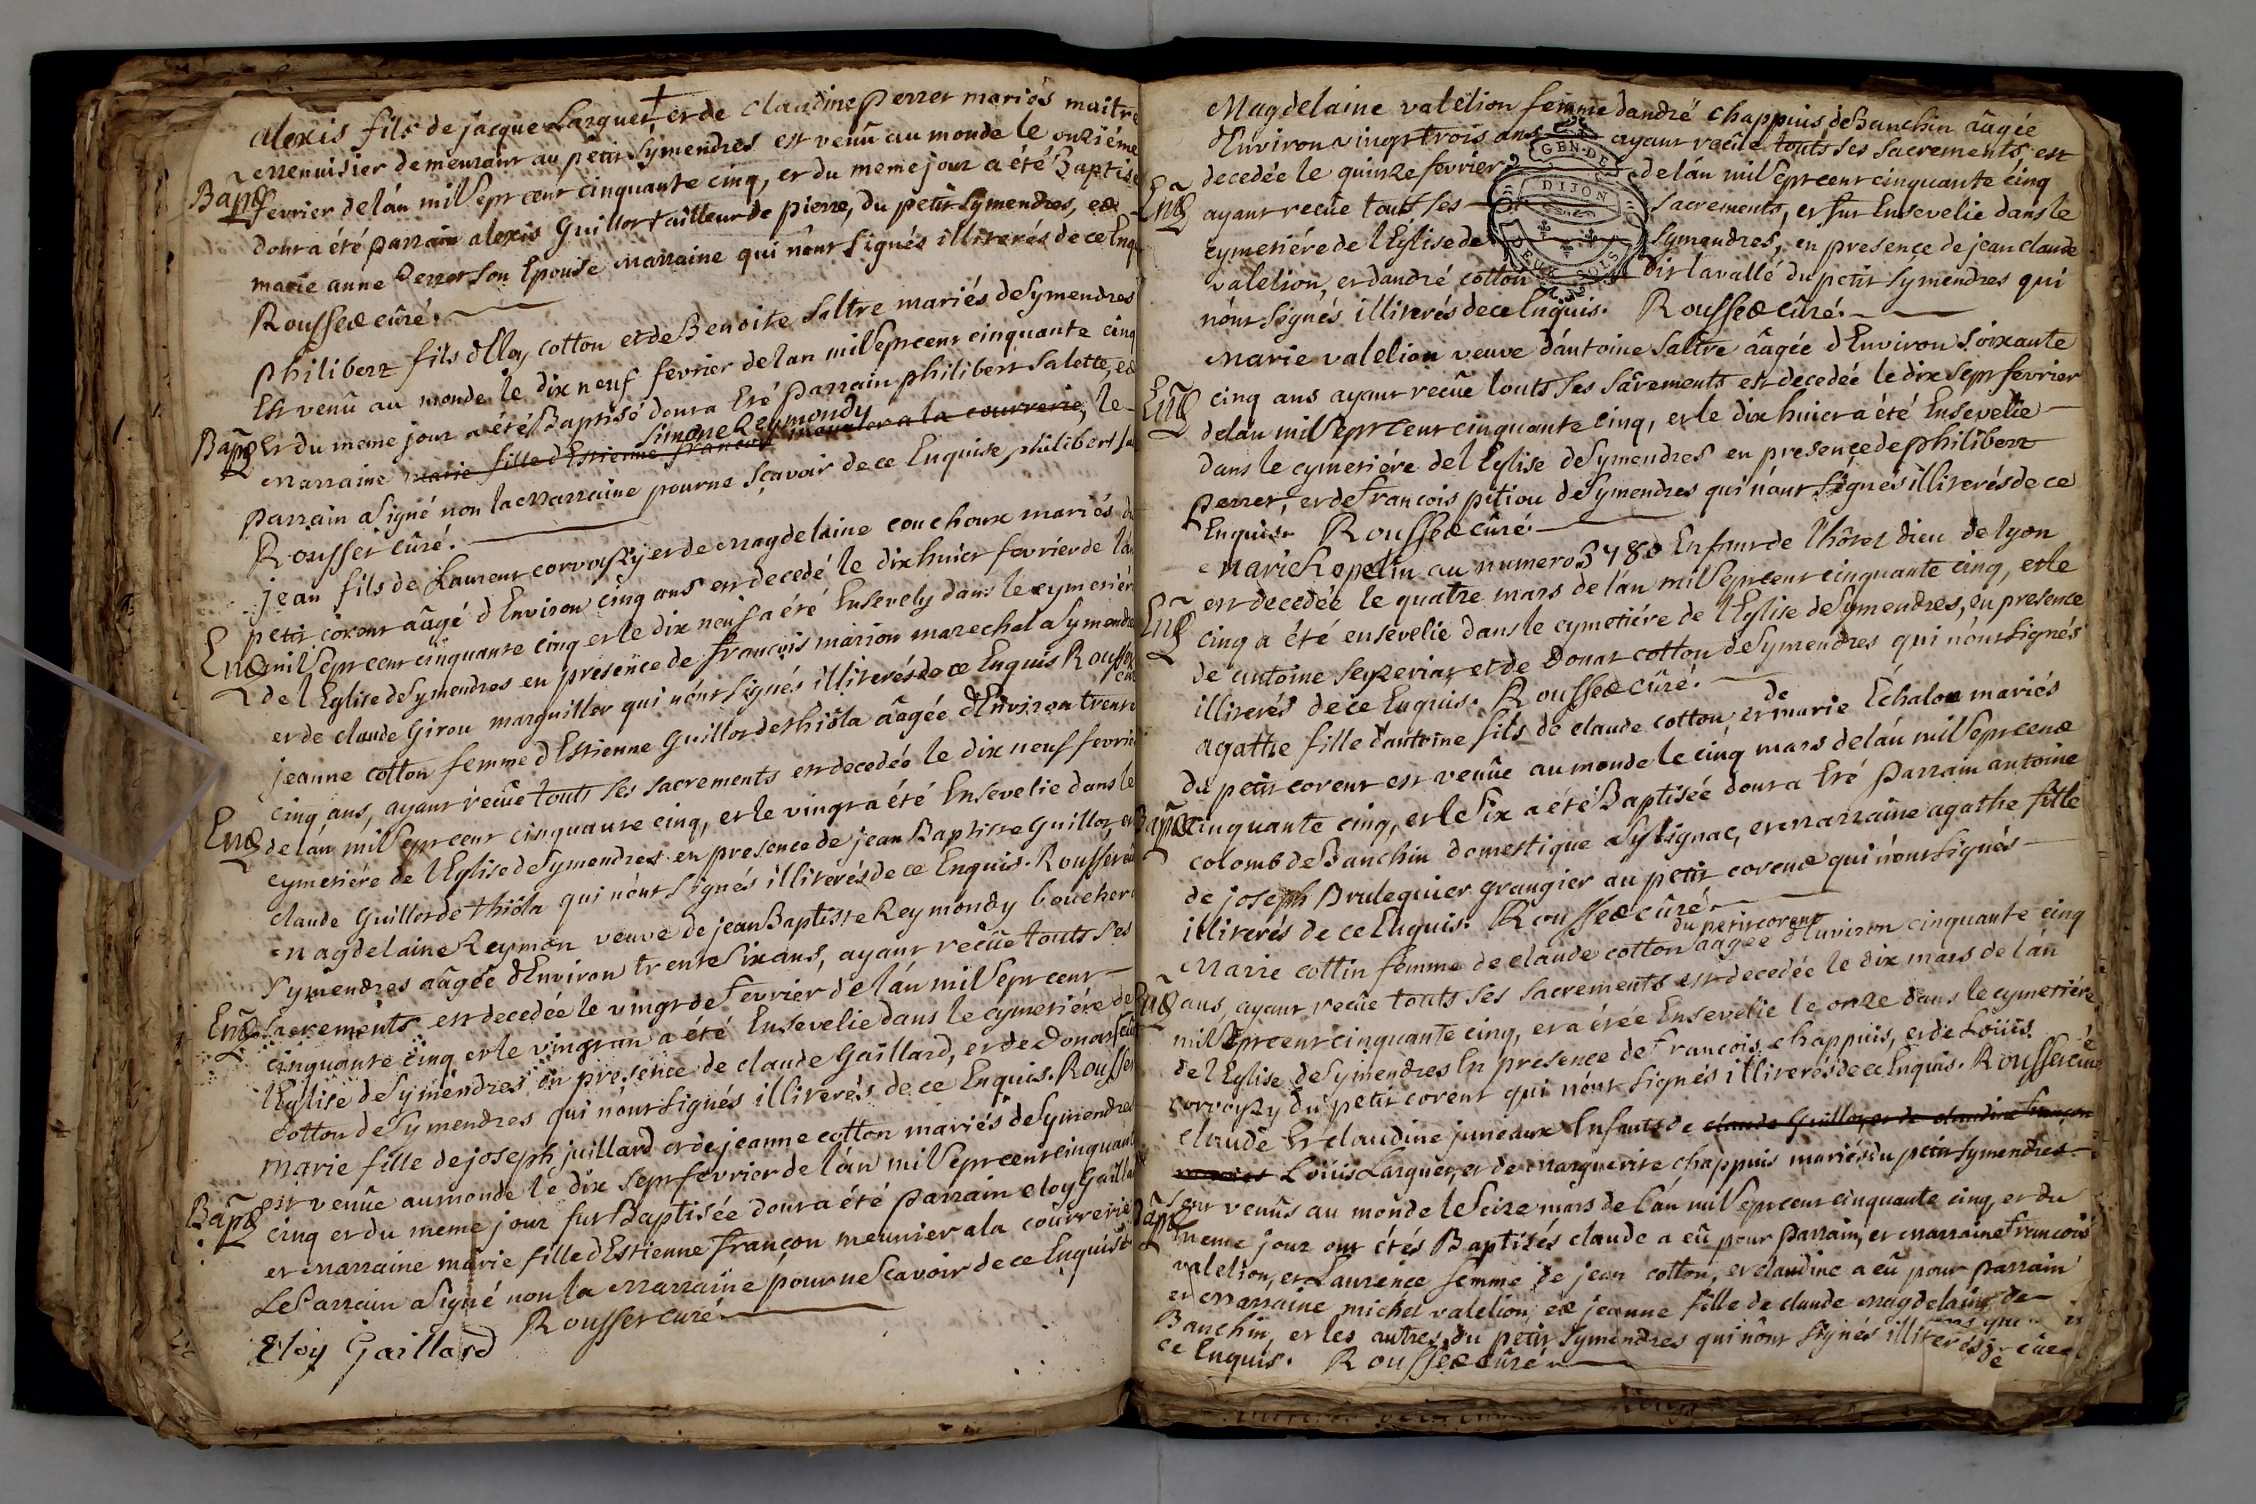 alexis fils de jacque Larguet et de claudine perret mariés maitre
menuisier demeurant au petit Symendres est venû au monde le onziéme
Bapt
fevrier de lán mil Sept cent cinquante cinq, et du meme jour a été Baptisé
dont a été parrain alexis Guillot tailleur de pierre, du petit Symendres, et
marie anne perret son Epouse marraine qui nónt Signés illiterés de ce Enq
Rousset cûré.
philibert fils dEloy cotton et de Benoite Saltre mariés de Symendres
Est venû au monde le dix neuf fevrier de lan mil Sept cent cinquante cinq
Bapt
Et du meme jour a été Baptisé dont a Eté parrain philibert Salette, et
Simone Reymondy
marraine marie fille dEstienne francon meunier a la courrerie, le
parrain a Signé non la marraine pour ne Sçavoir de ce Enquise, philibert Sa
Rousset cûré.
jean fils de Laurent corvoysy et de magdelaine couchoux mariés du
petit corent âagé dEnviron cinq ans est decedé le dix huict fevrier de lán
Ent
mil Sept cent cinquante cinq et le dix neuf a été Ensevely dans le cymetiére
de lEglise de Symendres en presence de françois marion marechal a Symendre
et de claude Girou marguillier qui nónt Signés illiterés de ce Enquis Rousset
curé
jeanne cotton femme dEstienne Guillot de thióla âagée dEnviron trente
cinq ans, ayant recûe touts ses sacrements est decedée le dix neuf fevrier
Ent
de lán mil Sept cent cinquante cinq, et le vingt a été Ensevelie dans le
cymetiére de lEglise de Symendres en presence de jean Baptiste Guillot, et
claude Guillot de thióla qui nónt Signés illiterés de ce Enquis. Rousset cûré
magdelaine Reyman veuve de jean Baptiste Reymondy boucher
Symendres âagée dEnviron trente Six ans, ayant recûe touts Ses
Ent
Sacrements est decedée le vingt de fevrier de lán mil Sept cent
cinquante cinq et le vingt un a été Ensevelie dans le cymetiére de
lEglise de Symendres en presence de claude Gaillard, et de Donat
cotton de Symendres qui nónt Signés illiterés de ce Enquis. Rousset
marie fille de joseph juillard et de jeanne cotton mariés de Symendres
est venûe au monde le dix Sept fevrier de lán mil Sept cent cinquante
Bapt
cinq et du meme jour fut Baptisée dont a été parrain eloy Gaillard
et marraine marie fille dEstienne françon meunier a la courrerie
Le Parrain a Signé non la marraine pour ne Scavoir de ce Enquise
Eloy Gaillard Rousset curé
Magdelaine valelion femme dandré chappuis de Banchin âagée
dEnviron vingt trois ans ayant recûe touts ses sacrements est
decedée le quinze fevrier de lán mil Sept cent cinquante cinq
Ent
ayant recûe touts Ses Sacrements, et fut Ensevelie dans le
cymetiére de lEglise de Symendres, en presence de jean claude
valelion, et dandré cotton dit lavallé du petit Symendres qui
nónt Signés illiterés de ce Enquis. Rousset cûré.
GEN. DE
DIJON
DEUX SOLS
Marie valelion veuve dántoine Saltre âagée dEnviron Soixante
Ent
cinq ans ayant recûe touts Ses Sacrements est decedée le dix Sept fevrier
de lán mil Sept cent cinquante cinq, et le dix huict a été Ensevelie
dans le cymetiére de lEglise de Symendres en presence de philibert
perret, et de francois pitiou de Symendres qui nónt Signés illiterés de ce
Enquis. Rousset cûré.
Marie Ropelin au numero 3480 Enfant de lhôtel dieu de lyon
est decedée le quatre mars de lán mil Sept cent cinquante cinq, et le
Ent
cinq a été ensevelie dans le cymetiére de lEglise de Symendres, en presence
de antoine Seyzeriat et de Donat cotton de Symendres qui nónt Signés
illiterés de ce Enquis. Rousset cûré.
de
agathe fille dantoine fils de claude cotton, et marie Echalou mariés
du petit corent est venûe au monde le cinq mars de lán mil Sept cent
Bapt
cinquante cinq, et le Six a été Baptisée dont a Eté parrain antoine
colomb de Banchin domestique a Sylignac, et marraine agathe fille
de joseph Brulequier grangier au petit corent qui nónt Signés
illiterés de ce Enquis. Rousset cûré.
du petit corent
Marie cottin femme de claude cotton âagée dEnviron cinquante cinq
Ent
ans, ayant recûe touts ses sacrements est decedée le dix mars de lán
mil Sept cent cinquante cinq, et a étée Ensevelie le onze dans le cymetiére
de lEglise de Symendres En presence de francois chappuis, et de Loüis
corvoysy du petit corent qui nónt Signés illiterés de ce Enquis. Rousset cûré
claude Et claudine jumeaux Enfants de claude Guillot et de claudine françon
mariés Loüis Larguet, et de marguerite chappuis mariés du petit Symendres
Sont venûs au monde le Seize mars de lán mil Sept cent cinquante cinq, et du
Bapt
meme jour ont étés Baptisés claude a eû pour parrain, et marraine francois
valelion, et Laurence femme de jean cotton, et claudine a eû pour parrain
et marraine michel valelion, et jeanne fille de claude magdelain de
Banchin, et les autres du petit Symendres qui nónt Signés illiterés de
ce Enquis. Rousset cûré